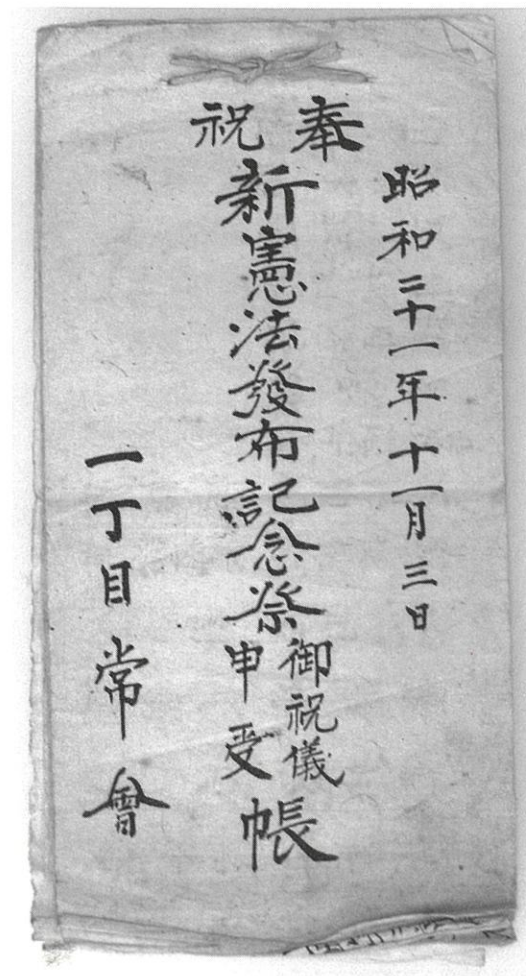 昭和二十一年十一月三日
奉祝
新憲法發布記念祭
御祝儀
申受
帳
一丁目常會